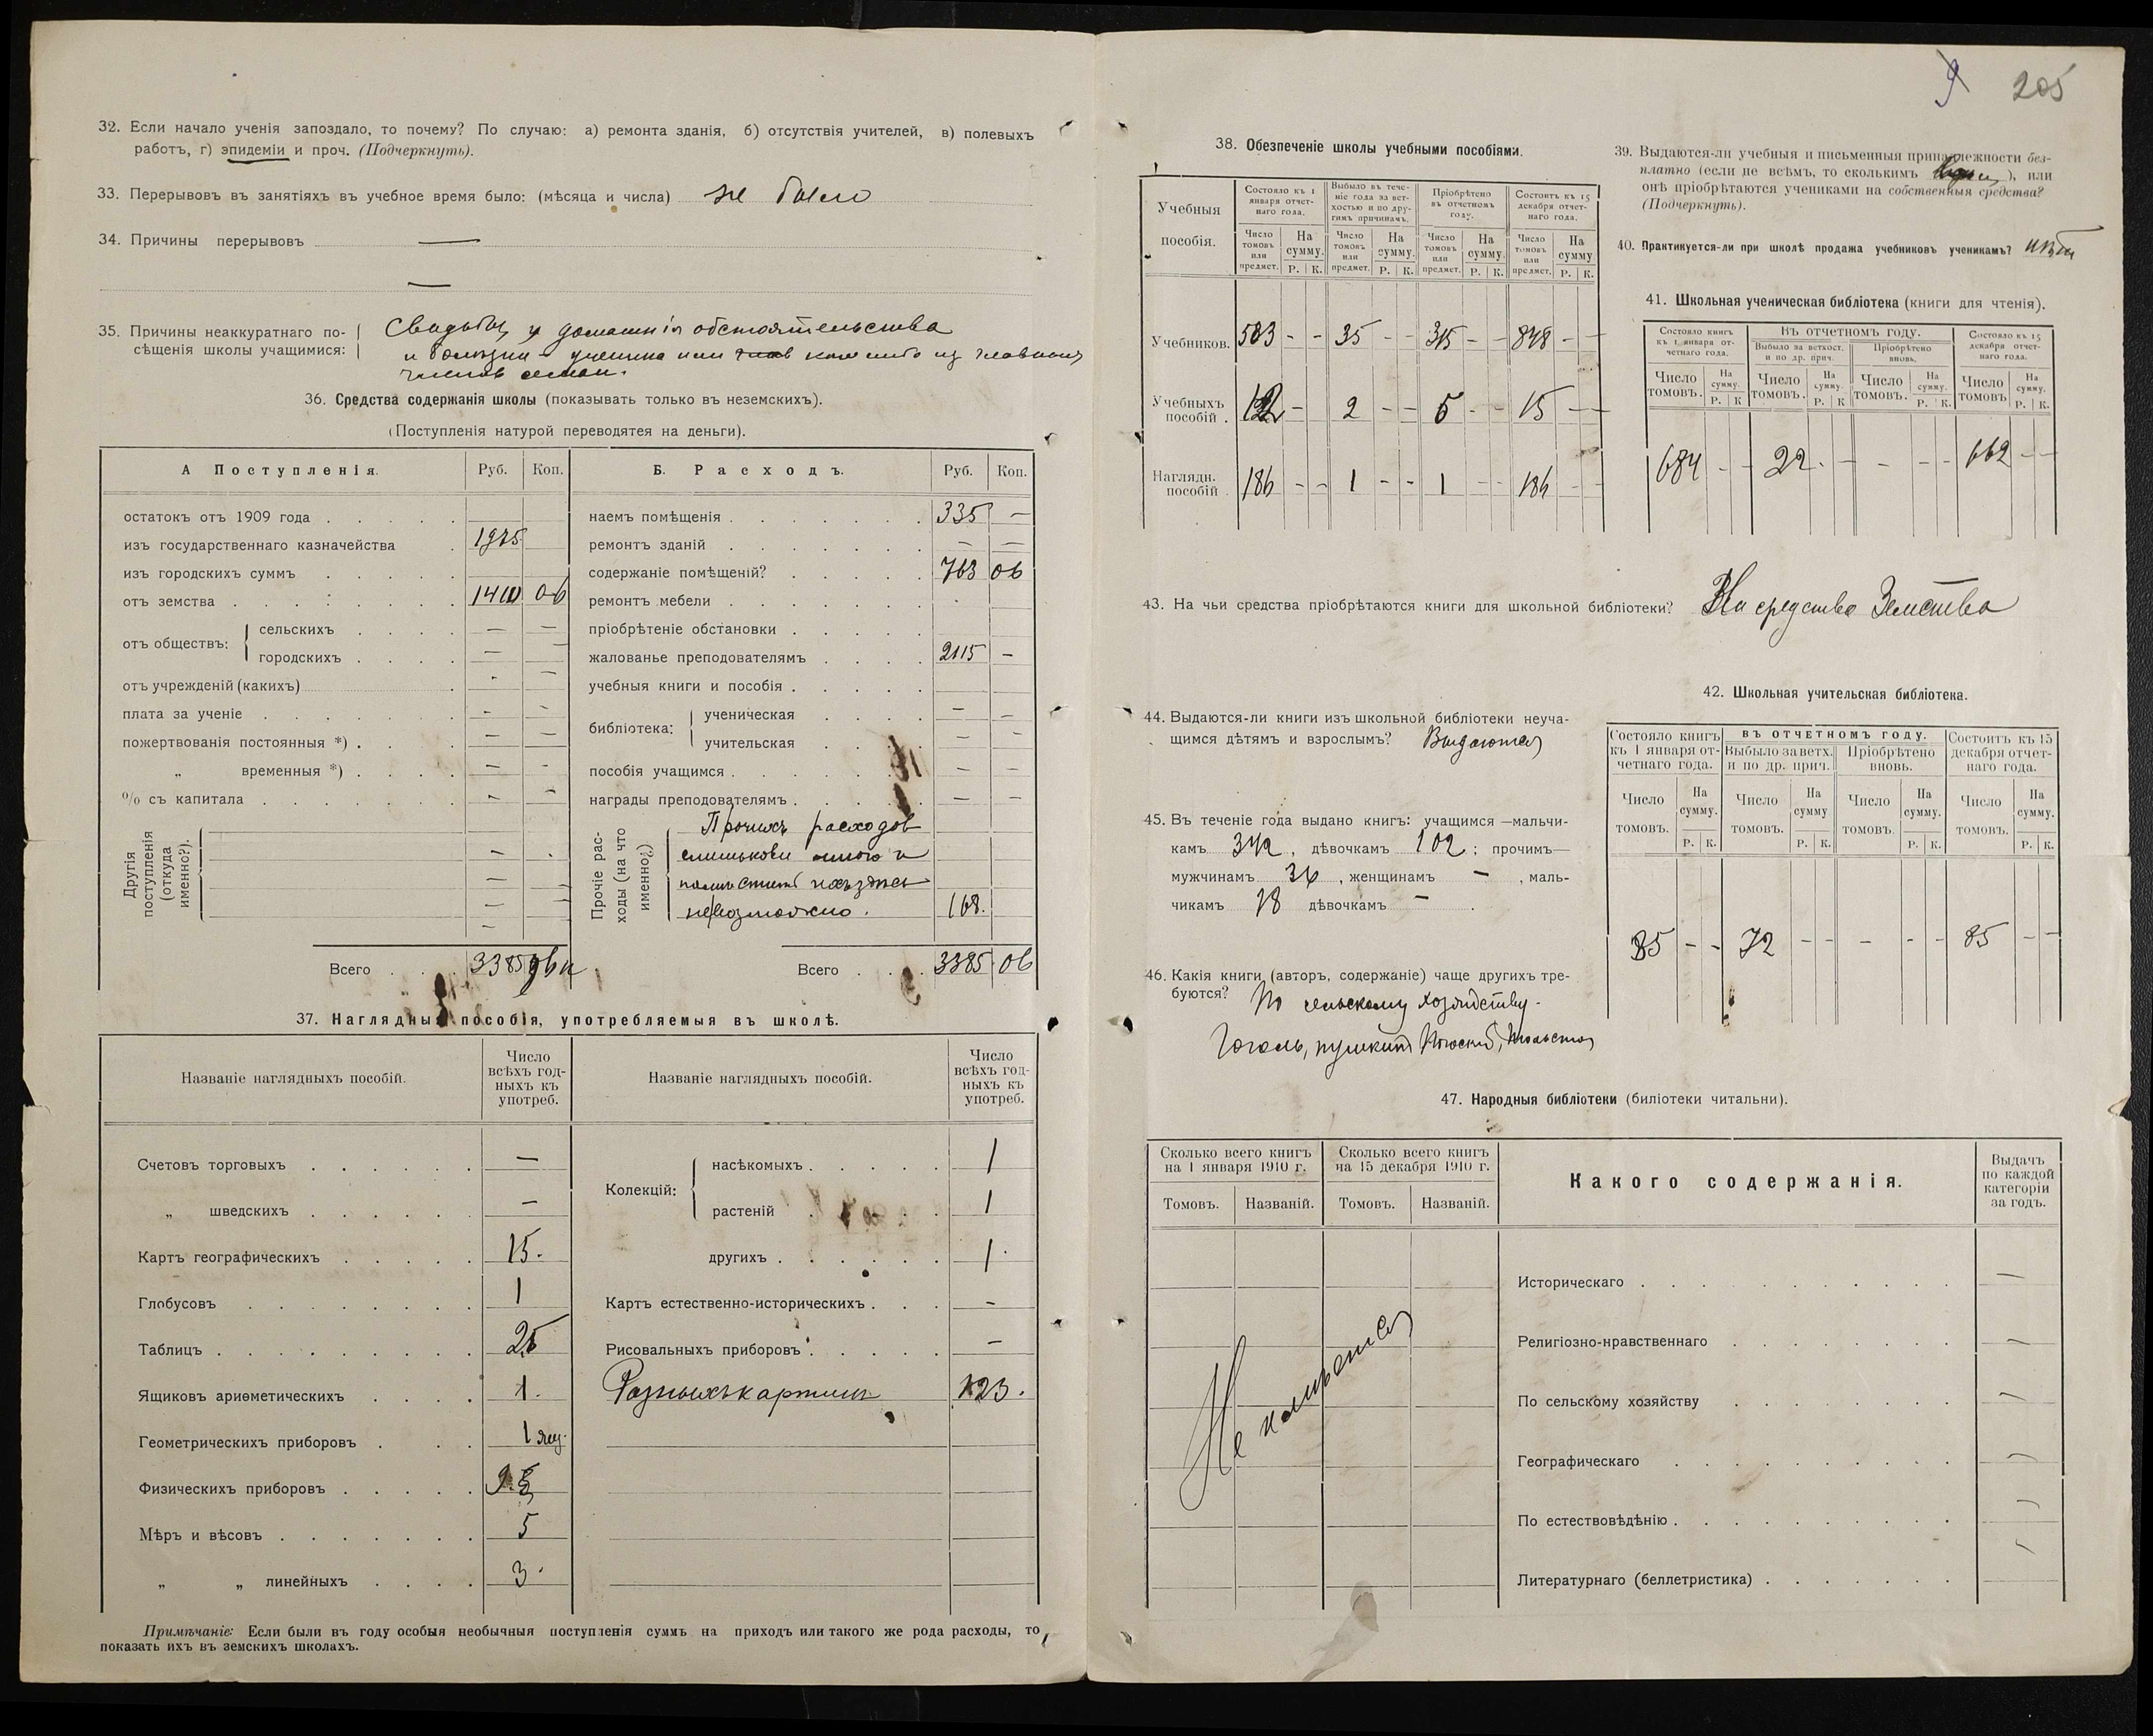 9 205
32. Если начало ученія запоздало, то почему? По случаю: а) ремонта зданія, б) отсутствія учителей, в) полевыхъ
работъ, г) эпидеміи и проч. (Подчеркнуть).
33. Перерывовъ въ занятіяхъ въ учебное время было: (мѣсяца и числа) не было
34. Причины перерывовъ —
—
35. Причины неаккуратнаго по-
сѣщенія школы учащимися:
Свадьбы, домашнія обстоятельства
и болѣзни - ученика или кого либо из главныхъ
членовъ семьи.
36. Средства содержанія школы (показывать только въ неземскихъ).
(Поступленія натурой переводятея на деньги).
А Поступленія. Руб. Коп. Б. Расходъ. Руб. Коп.
остатокъ отъ 1909 года наемъ помѣщенія 335 —
изъ государственнаго казначейства 1975 ремонтъ зданій — —
изъ городскихъ суммъ содержаніе помѣщеній? 763 06
отъ земства 1410 06 ремонтъ мебели
отъ обществъ: сельскихъ — — пріобрѣтеніе обстановки
городскихъ — — жалованье преподователямъ 2115 —
отъ учрежденій (какихъ) - — учебныя книги и пособія
плата за ученіе - - библіотека: ученическая — —
пожертвованія постоянныя *) — — учительская — —
„ временныя *) — - пособія учащимся — —
% съ капитала - - награды преподователямъ — —
Другія поступленія (откуда именно?).
Прочіе рас-
ходы (на что
именно?)
Прочихъ расходов
слишьком много и
помѣстить ихъ здѣсь
невозможно. 168.
Всего 3385 06 к Всего 3385 06
37. Наглядныя пособія, употребляемыя въ школѣ.
Названіе наглядныхъ пособій. Число всѣхъ год-ныхъ къ употреб. Названіе наглядныхъ пособій. Число всѣхъ год-ныхъ къ употреб.
Счетовъ торговыхъ — Колекцій: насѣкомыхъ 1
„ шведскихъ — растеній 1
Картъ географическихъ 15. другихъ 1.
Глобусовъ 1 Картъ естественно-историческихъ -
Таблицъ 25 Рисовальныхъ приборовъ —
Ящиковъ ариѳметическихъ 1. Разныхъ картинъ 123.
Геометрическихъ приборовъ 1 ящ.
Физическихъ приборовъ
Мѣръ и вѣсовъ 5
„ „ линейныхъ 3.
Примѣчаніе: Если были въ году особыя необычныя поступленія суммъ на приходъ или такого же рода расходы, то
показать ихъ въ земскихъ школахъ.
38. Обезпеченіе школы учебными пособіями.
Учебныя пособія. Состояло къ 1 января отчет-наго года. Выбыло въ тече-ніе года за вет-хостью и по дру-гимъ причинамъ. Пріобрѣтено въ отчетномъ году. Состоитъ къ 15 декабря отчет-наго года.
Число томовъ или предмет. На сумму. Р. К. Число томовъ или предмет. На сумму. Р. К. Число томовъ или предмет. На сумму. Р. К. Число томовъ или предмет. На сумму Р. К.
Учебниковъ. 503 - - 35 - - 345 - - 848 - -
Учебныхъ пособій . 12 - 2 - - 5 - - 15 — —
Наглядн. пособій . 186 - - 1 - - 1 - - 186 - -
39. Выдаются-ли учебныя и письменныя принадлежности без-
платно (если не всѣмъ, то сколькимъ ), или
онѣ пріобрѣтаются учениками на собственныя средства?
(Подчеркнуть).
40. Практикуется-ли при школѣ продажа учебниковъ ученикамъ? нѣтъ
41. Школьная ученическая библіотека (книги для чтенія).
Состояло книгъ къ 1 января от-четнаго года. Въ отчетномъ году. Состояло къ 15 декабря отчет-наго года.
Выбыло за ветхост. и по др. прич. Пріобрѣтено вновь.
Число томовъ. На сумму. Р. К Число томовъ. На сумму. Р. К Число томовъ. На сумму. Р. К. Число томовъ На сумму. Р. К.
684 - - 22 - — - - - 662 - —
43. На чьи средства пріобрѣтаются книги для школьной библіотеки? На средства Земства
42. Школьная учительская библіотека.
44. Выдаются-ли книги изъ школьной библіотеки неуча-
щимся дѣтямъ и взрослымъ? Выдаются
Состояло книгъ къ 1 января от-четнаго года. въ отчетномъ году. Состоитъ къ 15 декабря отчет-наго года.
Выбыло за ветх. и по др. прич. Пріобрѣтено вновь.
Число томовъ. На сумму. Р. К. Число томовъ. На сумму Р. К. Число томовъ. На сумму. Р. К. Число томовъ. На сумму. Р. К.
85 - - 72 - - - - - 85 - -
45. Въ теченіе года выдано книгъ: учащимся —мальчи-
камъ 342, дѣвочкамъ 102; прочимъ—
мужчинамъ 36, женщинамъ —, маль-
чикамъ 18 дѣвочкамъ — .
46. Какія книги (авторъ, содержаніе) чаще другихъ тре-
буются? По сельскому хозяйству -
Гоголь, пушкинъ Толстой
47. Народныя библіотеки (биліотеки читальни).
Сколько всего книгъ на 1 января 1910 г. Сколько всего книгъ на 15 декабря 1910 г. Какого содержанія. Выдачъ по каждой категоріи за годъ.
Томовъ. Названій. Томовъ. Названій.
Не имѣется
Историческаго —
Религіозно-нравственнаго —
По сельскому хозяйству —
Географическаго —
По естествовѣдѣнію —
Литературнаго (беллетристика) —